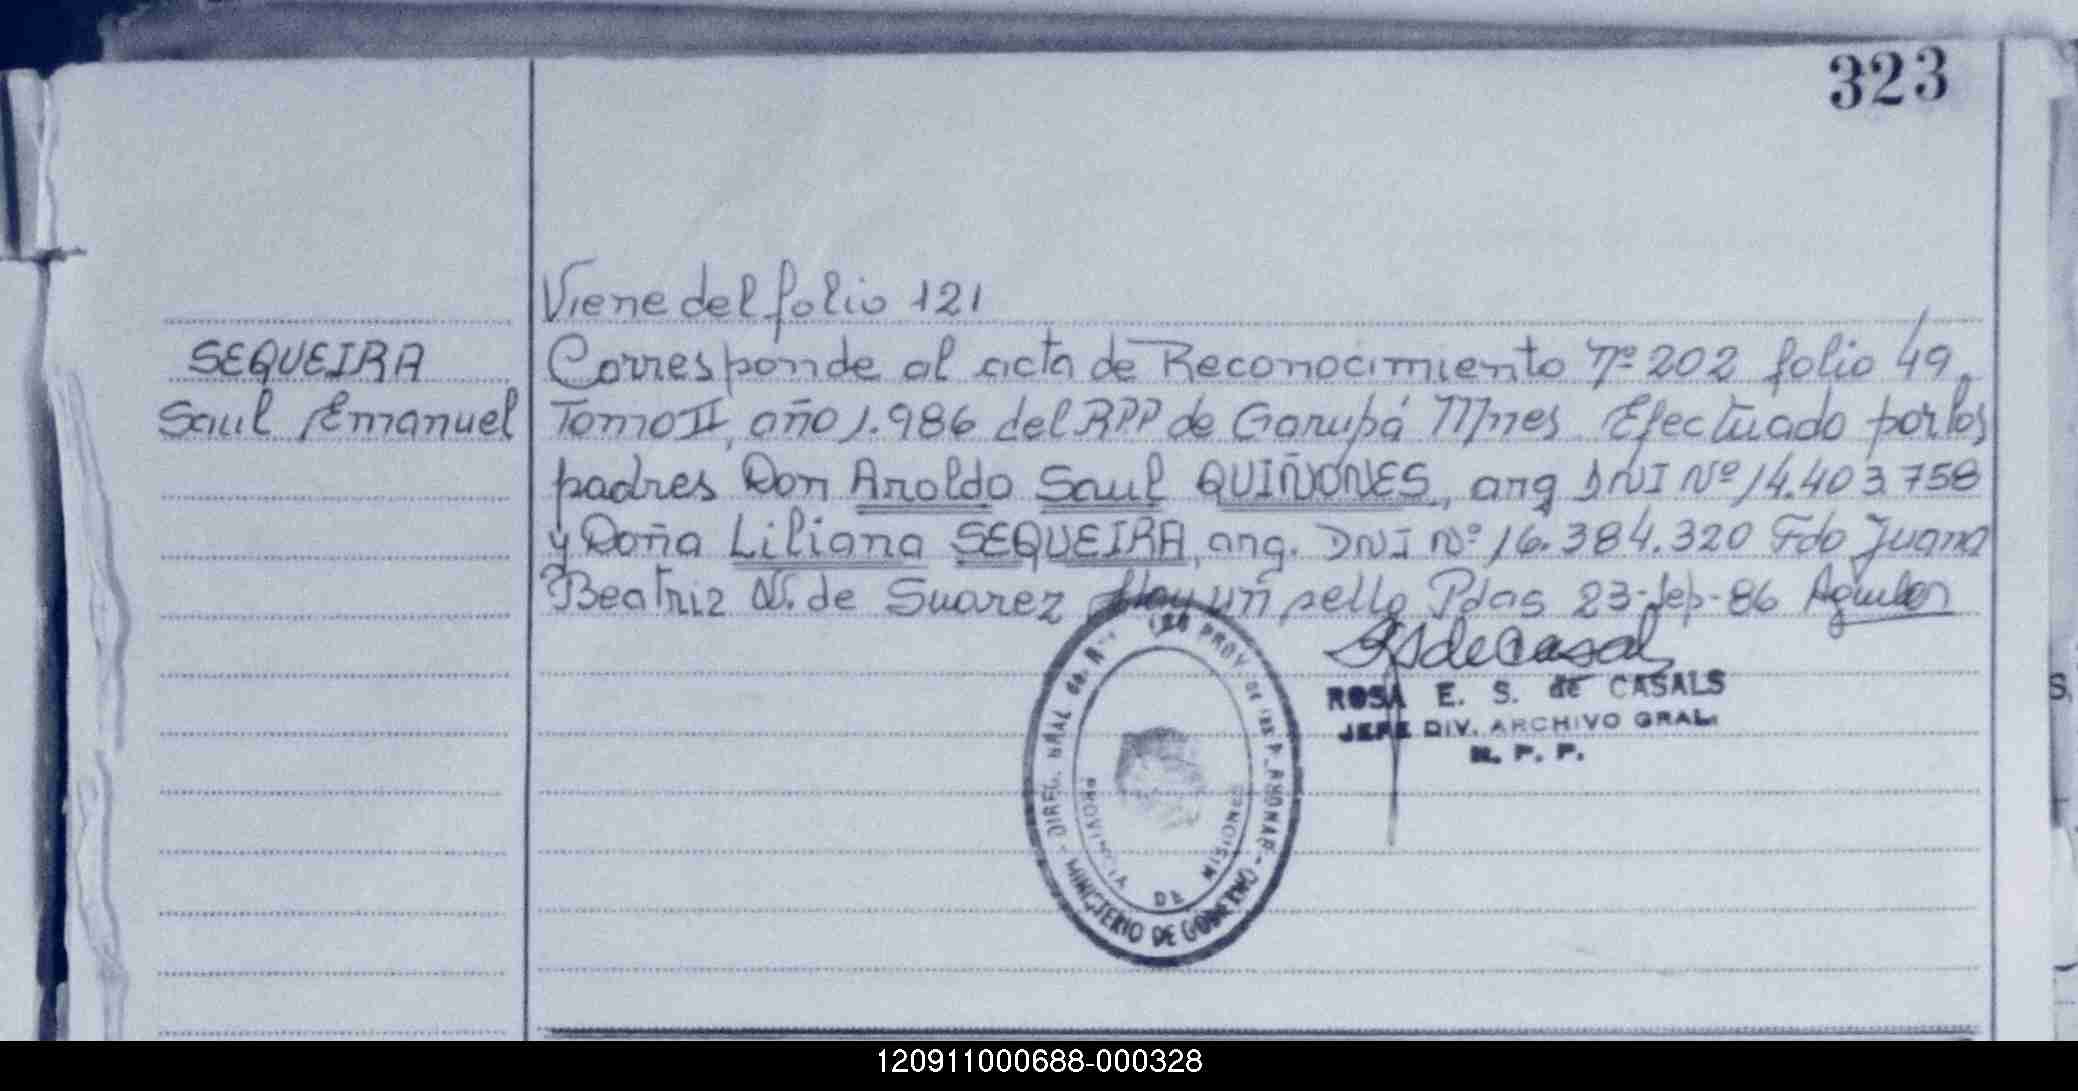 323
Viene del folio 121
SEQUEIRA
Saul Emanuel
Corresponde al acta de Reconocimiento Nº 202 folio 49
Tomo II, año 1.986 del RPP de Garupá Mnes. Efectuado por los
padres Don Aroldo Saul QUIÑONES, arg DNI Nº 14.403.758
y Doña Liliana SEQUEIRA, arg. DNI Nº 16.384.320 Fdo Juana
Beatriz N. de Suarez Hay un sello Pdas 23-Sep-86
ROSA E. S. de CASALS
JEFE DIV. ARCHIVO GRAL.
R. P. P.
MINISTERIO DE GOBIERNO
PROVINCIA DE MISIONES
120911000688-000328